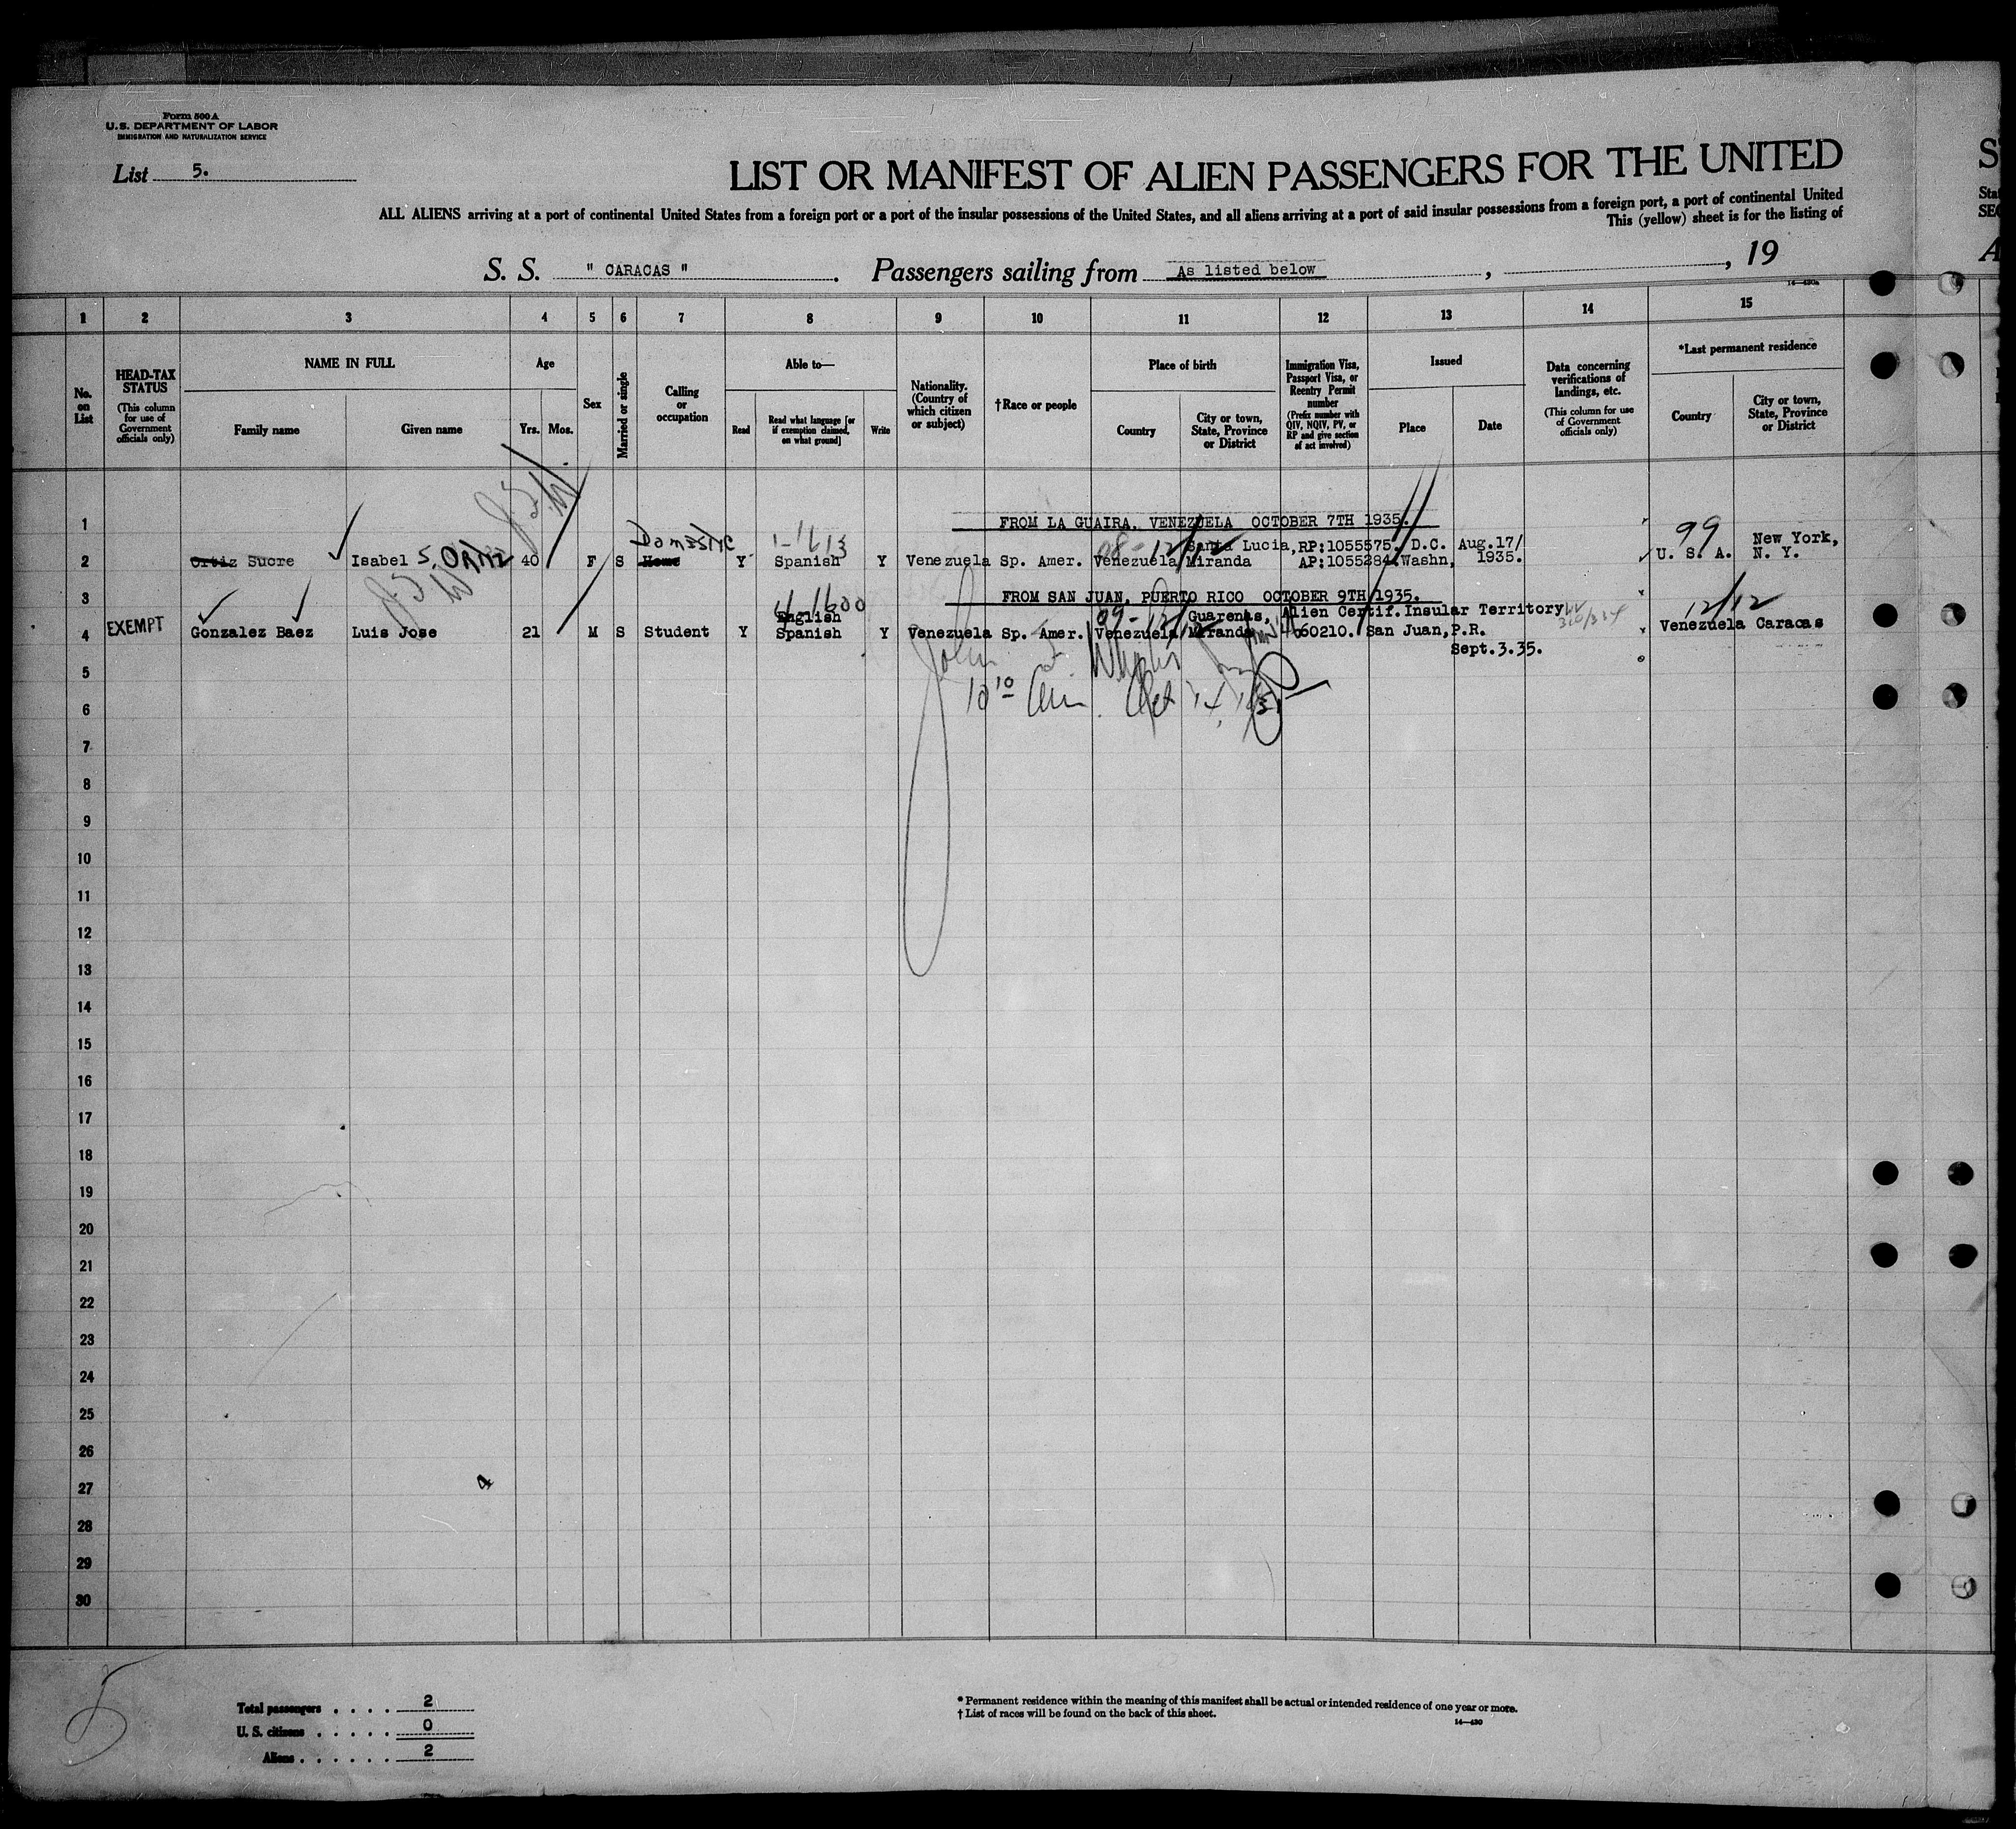 Form 500 A
U.S. DEPARTMENT OF LABOR
IMMIGRATION AND NATURALIZATION SERVICE
List 5.
LIST OR MANIFEST OF ALIEN PASSENGERS FOR THE UNITED
ALL ALIENS arriving at a port of continental United States from a foreign port or a port of the insular possessions of the United States, and all aliens arriving at a port of said insular possessions from a foreign port, a port of continental United
This (yellow) sheet is for the listing of
S. S. " CARACAS " . Passengers sailing from As listed below , , 19
14—430a
1 2 3 4 5 6 7 8 9 10 11 12 13 14 15
No. on List
HEAD-TAX STATUS (This column for use of Government officials only)
NAME IN FULL Family name Given name
Age Yrs. Mos.
Sex
Married or single
Calling or occupation
Able to— Read Read what language [or if exemption claimed, on what ground] Write
Nationality. (Country of which citizen or subject)
†Race or people
Place of birth Country City or town, State, Province or District
Immigration Visa, Passport Visa, or Reentry Permit number (Prefix number with QIV, NQIV, PV, or RP and give section of act involved)
Issued Place Date
Data concerning verifications of landings, etc. (This column for use of Government officials only)
*Last permanent residence Country City or town, State, Province or District
1 FROM LA GUAIRA, VENEZUELA OCTOBER 7TH 1935.
Domestic 1-1613 99
Santa Lucia, RP:1055575. D.C. Aug.17/ New York,
2 Ortiz Sucre Isabel S. Ortiz 40 F S Home Y Spanish Y Venezuela Sp. Amer. Venezuela Miranda AP:1055284 Washn, 1935. U. S. A. N. Y.
3 FROM SAN JUAN, PUERTO RICO OCTOBER 9TH 1935.
4-1600 12/12
English Guarenas, Alien Certif. Insular Territory
4 EXEMPT Gonzalez Baez Luis Jose 21 M S Student Y Spanish Y Venezuela Sp. Amer. Venezuela Miranda 060210. San Juan, P.R. Venezuela Caracas
Sept.3.35.
5
10 10 am. Oct 14,
6
7
8
9
10
11
12
13
14
15
16
17
18
19
20
21
22
23
24
25
26
27
28
29
30
Total passengers . . . . 2
U. S. citizens . . . . . 0
Aliens . . . . . . 2
* Permanent residence within the meaning of this manifest shall be actual or intended residence of one year or more.
† List of races will be found on the back of this sheet.
14—430
5